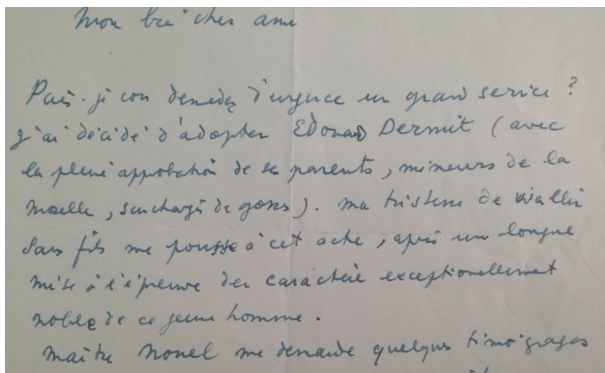 Mon très cher ami
Puis-je vous demander d'urgence un grand service ?
J'ai décidé d'adopter Edouard Dermit (avec
la pleine approbation de ses parents, mineurs de la
Moselle, surchargés de gosses). Ma tristesse de vieillir
sans fils me pousse à cet acte, après une longue
mise à l'épreuve du caractère exceptionnellement
noble de ce jeune homme.
Maître Nouel me demande quelques témoignages